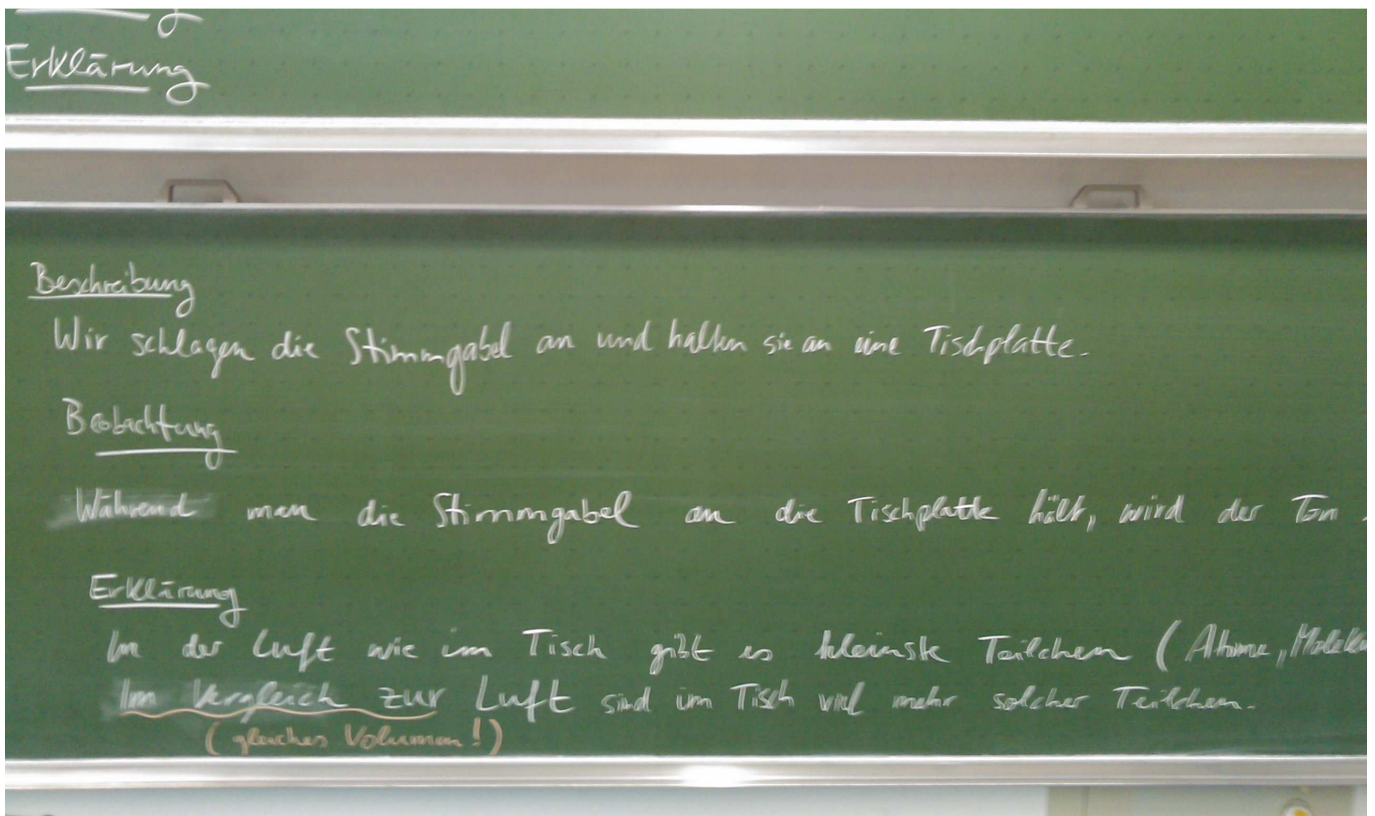 Erklärung
Beschreibung
Wir schlagen die Stimmgabel an und halten sie an eine Tischplatte.
Beobachtung
Während man die Stimmgabel an die Tischplatte hält, wird der Ton
Erklärung
In der Luft wie im Tisch gibt es kleinste Teilchen (Atome, Molekü
Im Vergleich zur Luft sind im Tisch viel mehr solcher Teilchen.
(gleiches Volumen!)